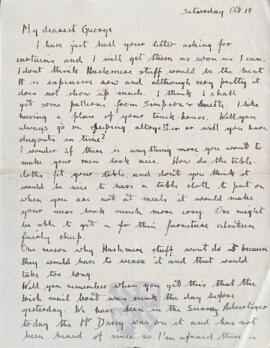 Saturday Oct 12
My dearest George
I have just had your letter asking for
curtains and I will get them as soon as I can.
I dont think Haslemere stuff would be the best
It is expensive now and although very pretty it
does not show up much. I think I shall
get some patterns from Simpson's I like
having a plan of your truck house. Will you
always go on altogether or will you have
dugouts on time?
I wonder if there is any thing more you want to
make your men look nice. How do the table
cloths fit your table, and dont you think it
would be nice to have a table cloth to put on
when you are not at meals it would make
your mess look much more cosy. One might
be able to get a for this furniture
fairly cheap.
One reason why Haslemere stuff wont do is because
they would have to weave it and that would
take too long.
Will you remember when you get this that the
Irish mail boat was sunk the day before
yesterday. We have seen in the Surrey Advertiser
to day the Mr Davey was on it and has not
been heard of since so I'm afraid there is